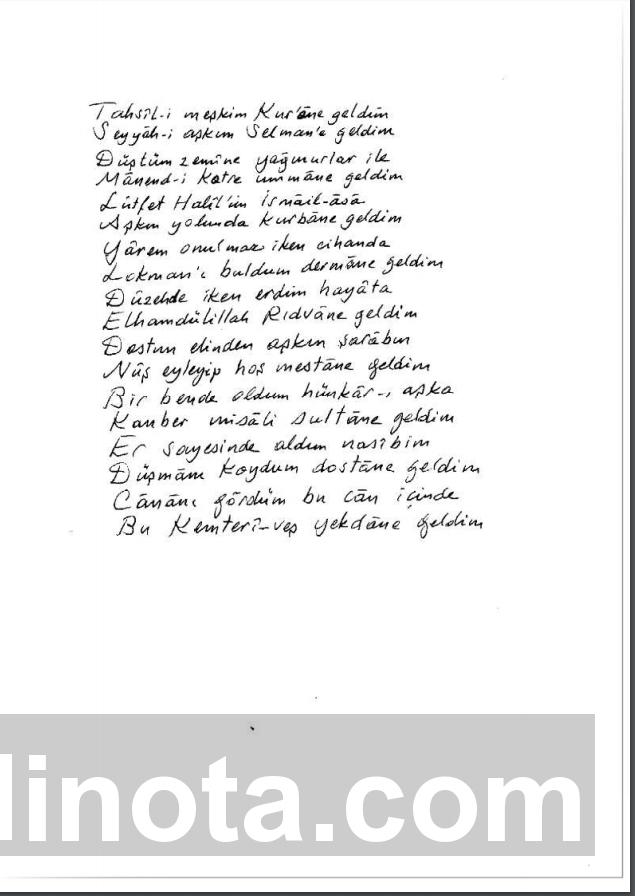 Tahsîl-i meşkim Kur'âne geldim
Seyyâh-i aşkım Selman'e geldim
Düştüm zemîne yağmurlar ile
Mânend-i Katre ummâne geldim
Lütfet Halîl'im İsmâil-âsâ
Aşkın yolunda Kurbâne geldim
Yârem onulmaz iken cihanda
Lokman'ı buldum dermâne geldim
Düzehde iken erdim hayâta
Elhamdülillah Rıdvâne geldim
Dostun elinden aşkın şarâbın
Nûş eyleyip hoş mestâne geldim
Bir bende oldum hünkâr-ı aşka
Kanber misâli sultâne geldim
Er sayesinde aldım nasîbim
Düşmânı koydum dostâne geldim
Cânânı gördüm bu cân içinde
Bu Kemterî-veş yekdâne geldim
linota.com